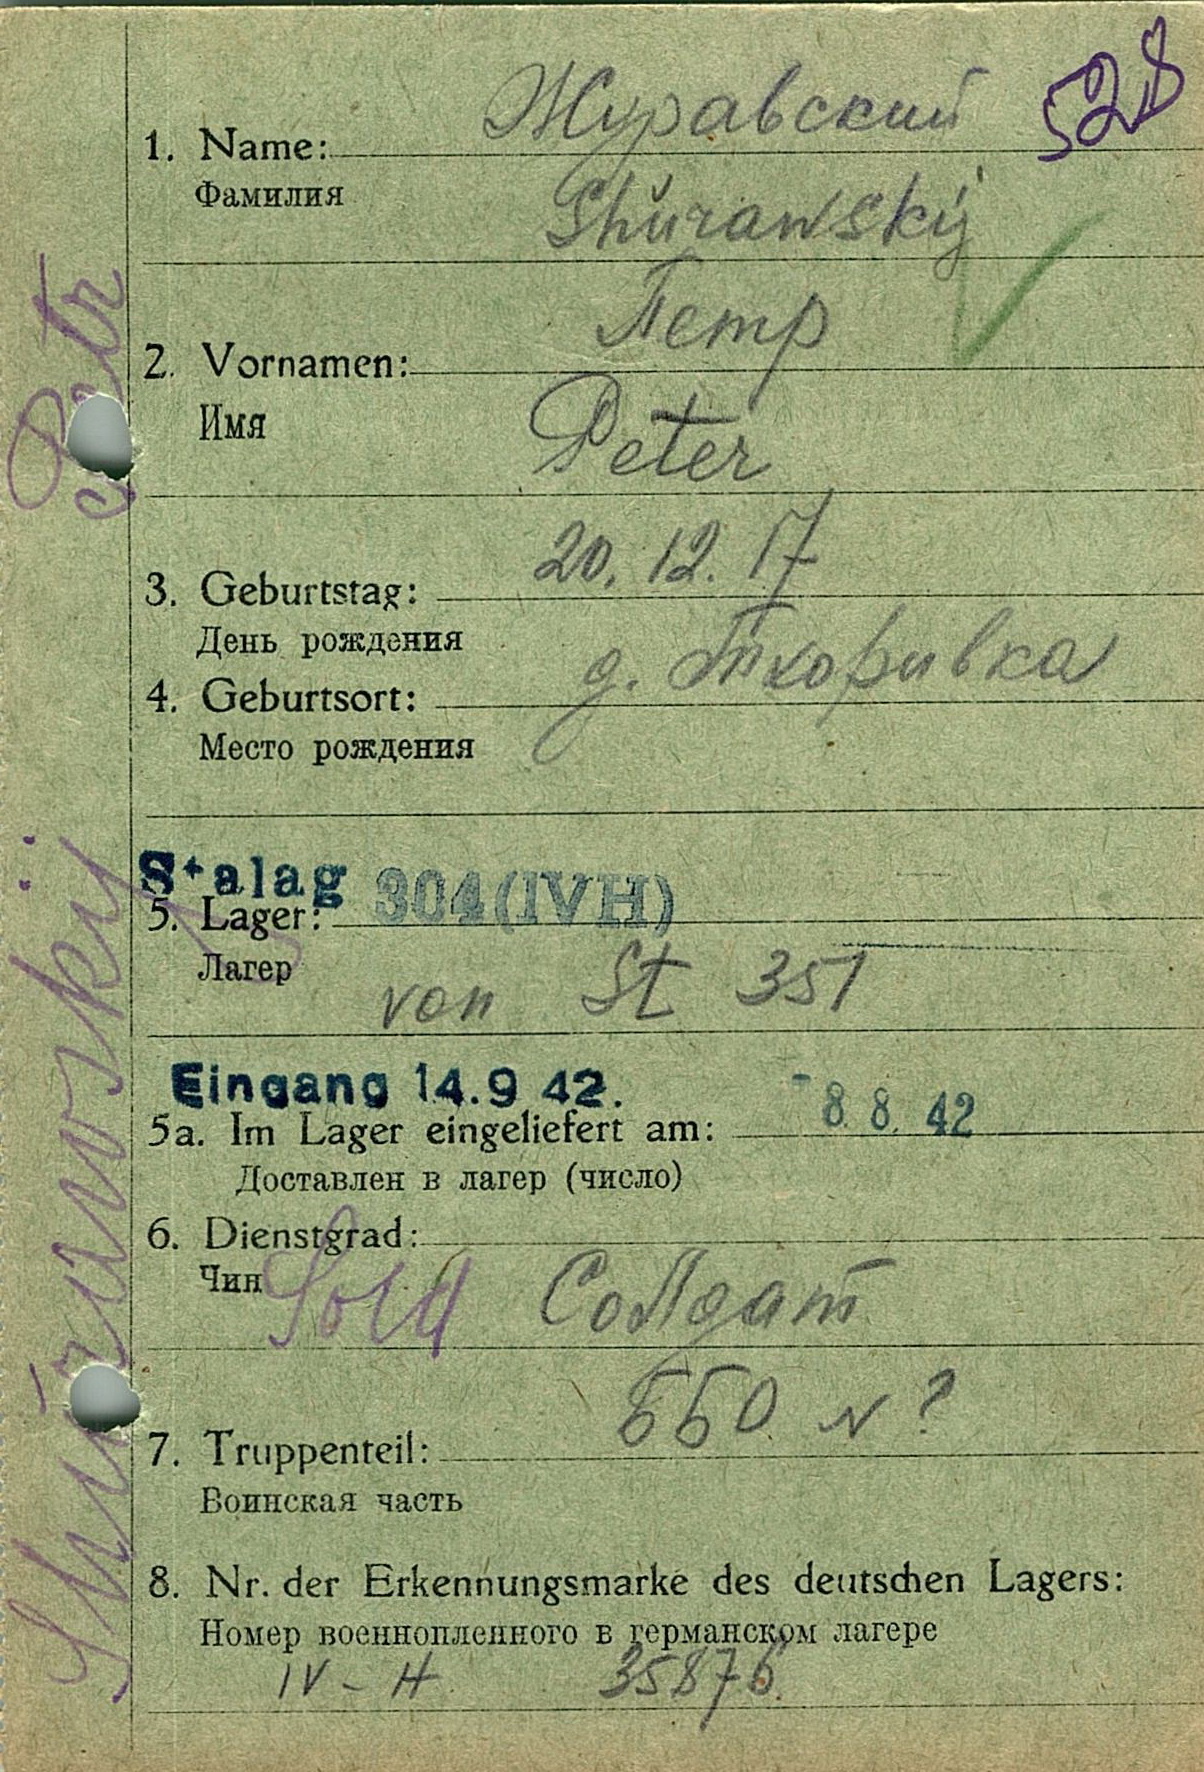 528
Журавский
1. Name:
Фамилия
Shŭrawskij
Петр
2. Vornamen:
Имя
Peter
20. 12. 17
3. Geburtstag:
День рождения
д. Тхоривка
4. Geburtsort:
Место рождения
Stalag 304 (IVH)
5. Lager:
Лагер
von St 351
Eingang 14.9 42.
-8. 8. 42
5a. Im Lager eingeliefert am:
Доставлен в лагер (число)
6. Dienstgrad:
Чин
Sold Солдат
ББО N ?
7. Truppenteil:
Воинская часть
8. Nr. der Erkennungsmarke des deutschen Lagers:
Номер военнопленного в германском лагере
IV - H 35876
Shŭrawskij Petr